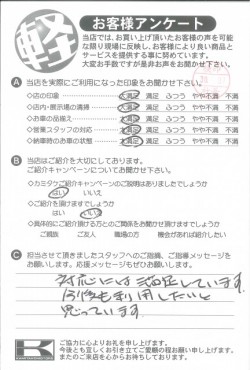 軽
お客様アンケート
当店では、お買い上げ頂いたお客様の声を可能
な限り現場に反映し、お客様により良い商品と
サービスを提供する事に努めています。
大変お手数ですが是非お声をお聞かせ下さい。
A 当店を実際にご利用になった印象をお聞かせ下さい。
◇店の印象 大満足 満足 ふつう やや不満 不満
◇店内・展示場の清掃 大満足 満足 ふつう やや不満 不満
◇お車の品揃え 大満足 満足 ふつう やや不満 不満
◇営業スタッフの対応 大満足 満足 ふつう やや不満 不満
◇納車時のお車の状態 大満足 満足 ふつう やや不満 不満
B 当店はご紹介を大切にしております。
ご紹介キャンペーンについてお聞かせ下さい。
◇カミタケご紹介キャンペーンのご説明はありましたでしょうか
はい いいえ
◇ご紹介を頂けますでしょうか
はい いいえ
◇具体的にご紹介頂ける方とのご関係をお聞かせ頂けますでしょうか
ご親族 ご友人 職場の方 機会があれば紹介したい
C 担当させて頂きましたスタッフへのご指摘、ご指導メッセージを
お願いします。応援メッセージもぜひお願いします。
対応には満足しています。
今後も利用したいと
思っています。
K
ご協力に心よりお礼を申し上げます。
今後とも宜しくお引き立てご愛顧の程お願い申し上げます。
またのご来店を心からお待ちしております。